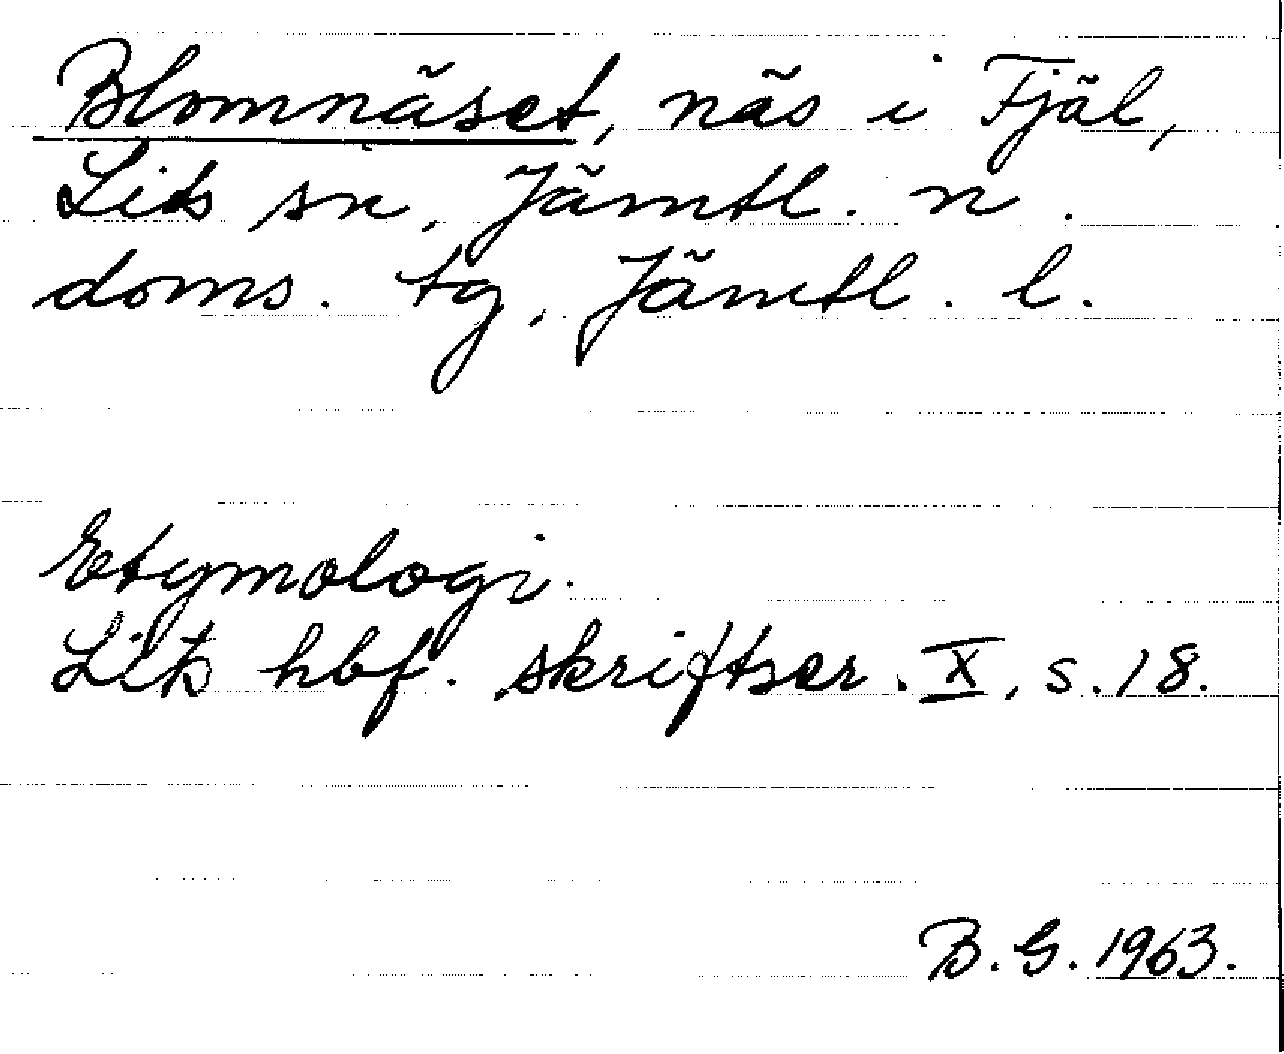 Blomnäset, näs i Fjäl,
Lits sn, Jämtl. n.
doms. tg, Jämtl. l.
Etymologi.
Lits hbf. skriftser. X, s. 18.
B. G. 1963.